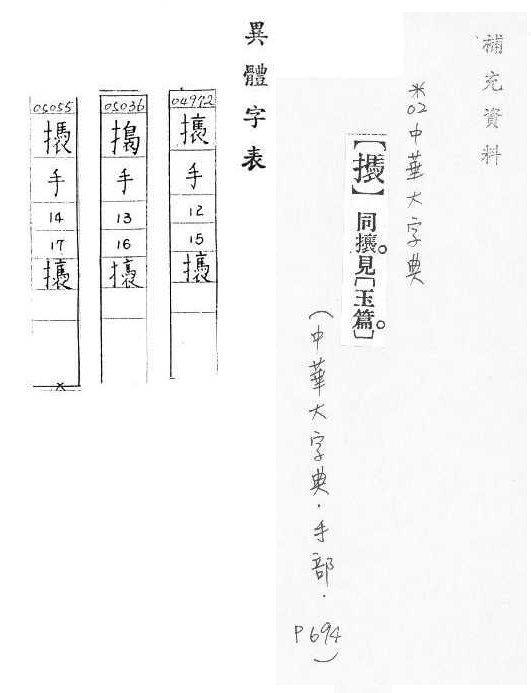 補充資料
※02中華大字典
【】同。見〔玉篇。〕
(中華大字典·手部·P694)
異體字表
04972
手
12
15
05036
手
13
16
05055
手
14
17
×